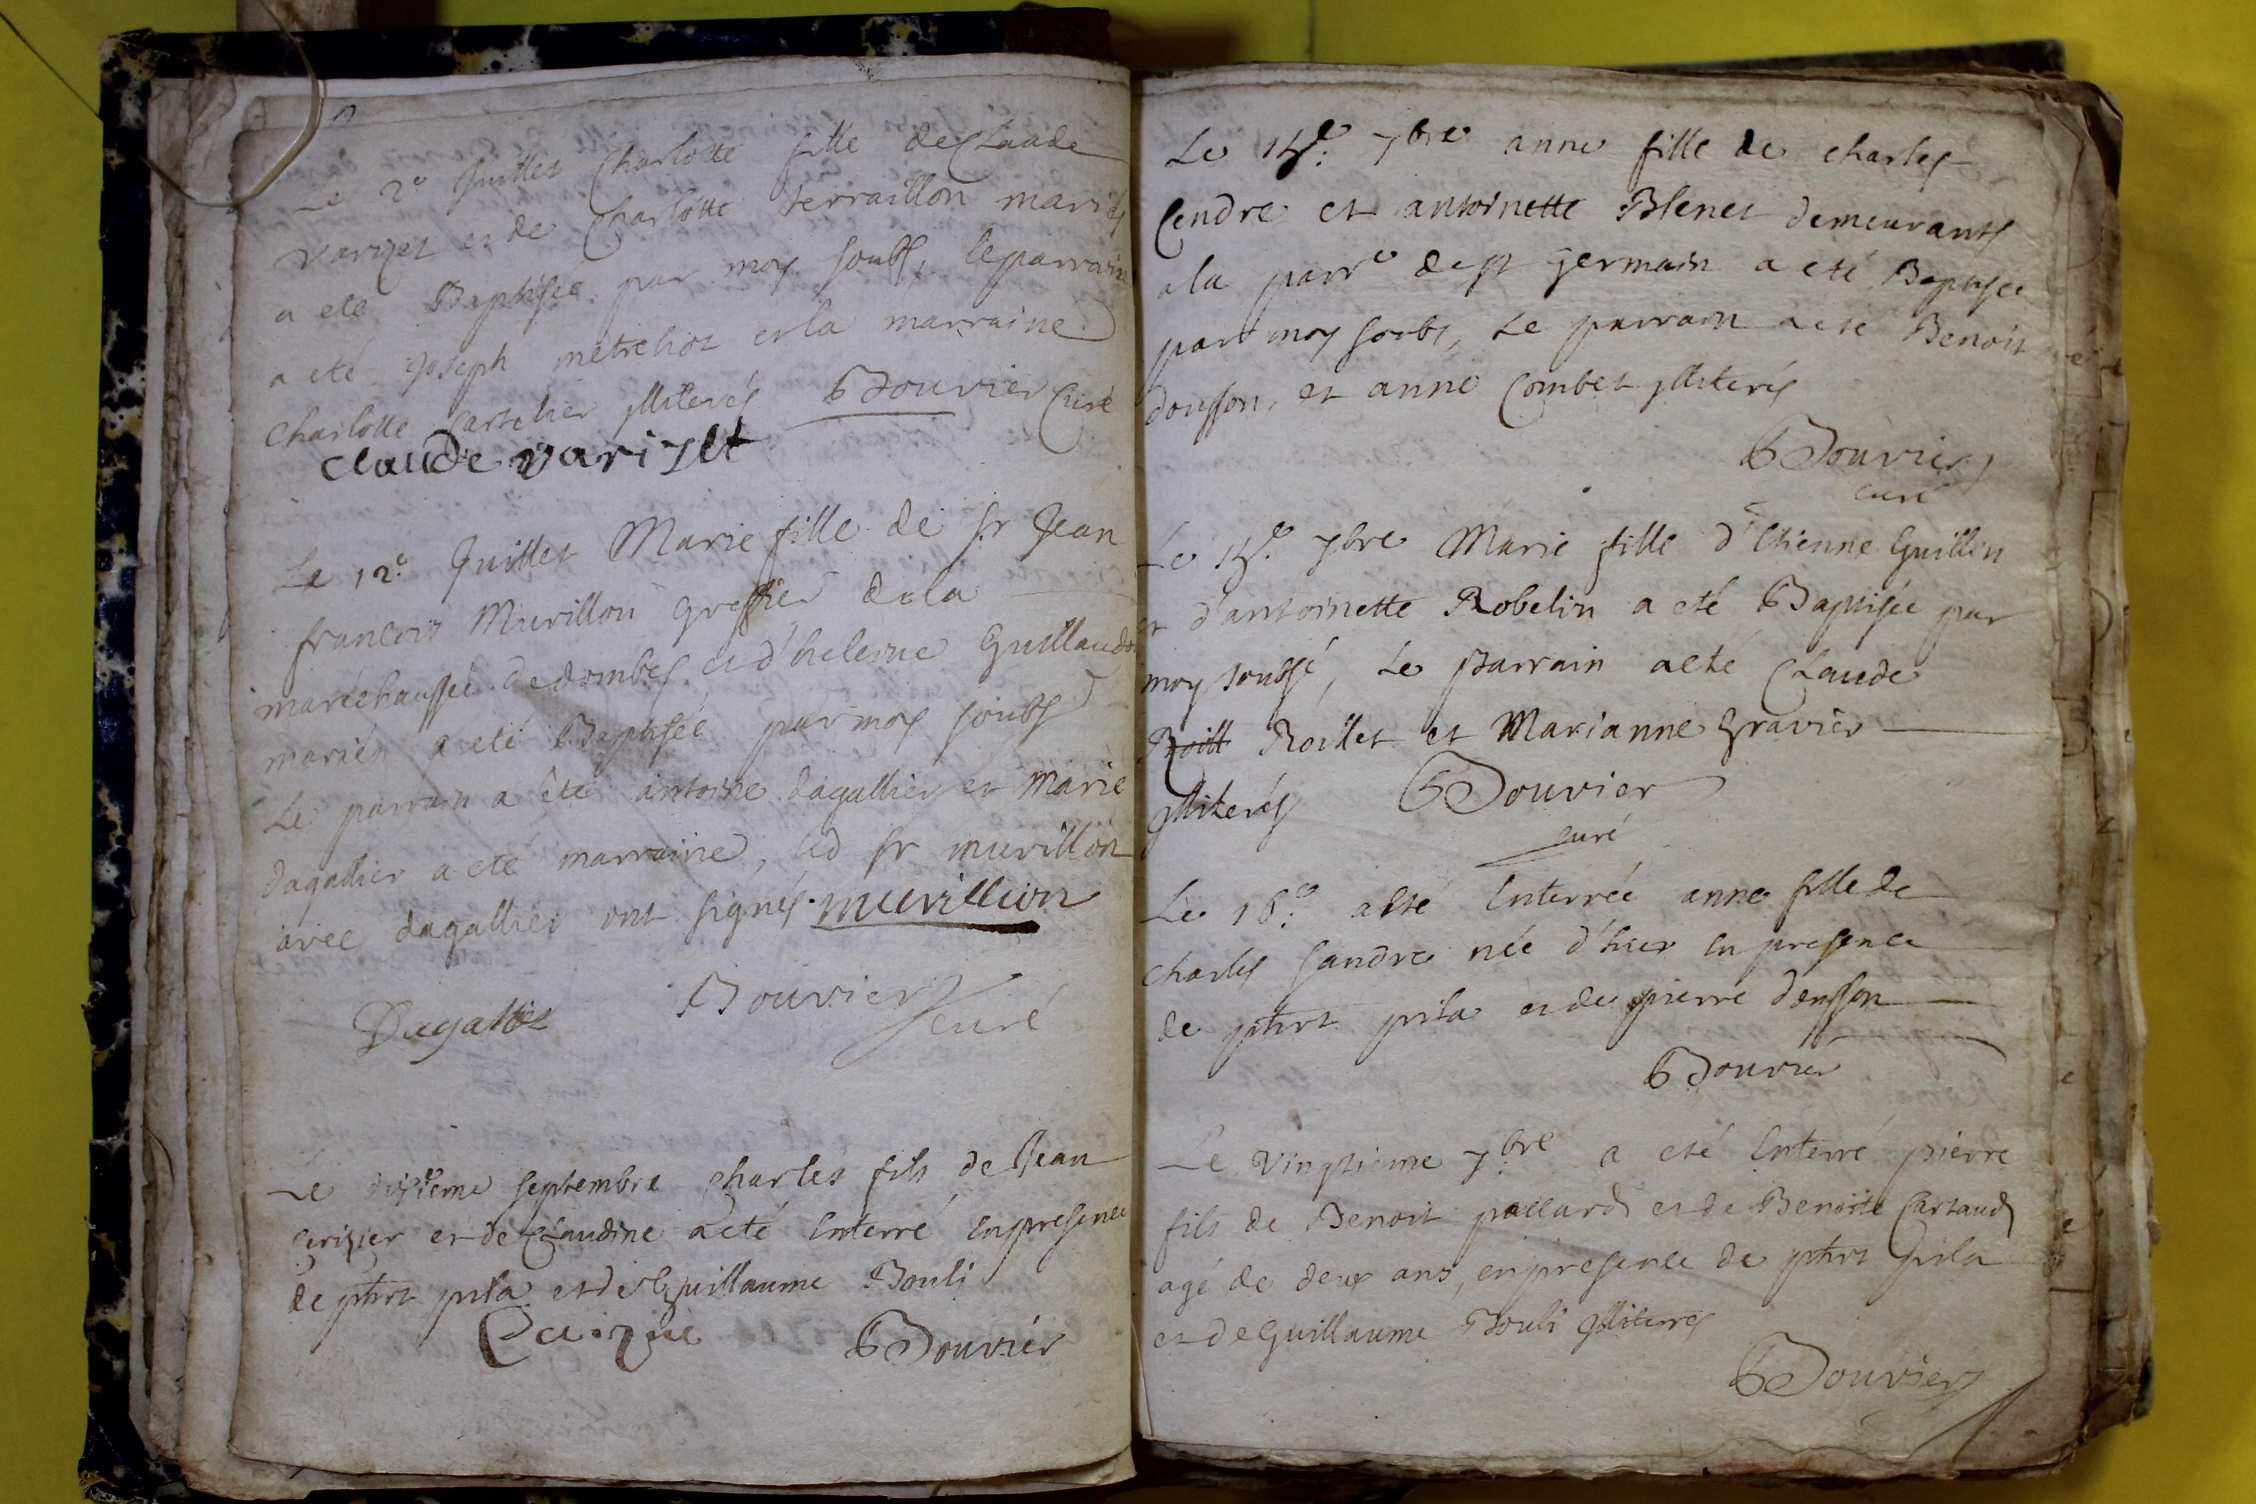 Le 2e Juillet Charlotte fille de Claude
varizet et de Charlotte terraillon mariés
a eté Baptisée par moy soubs, le parrain
a eté Joseph metrehot et la marraine
Charlotte Cartelier illiterés BBouvier Curé
claude varizet
Le 12e Juillet Marie fille de sr Jean
francois Muvillon greffier de la
maréchaussée de dombes et d'helesne Guillaudon
mariés a eté Baptisée par moy soubs
Le parrain a été antoine dagallier et Marie
Dagallier a eté marraine, led sr muvillon
avec dagallier ont signés. muvillion
Dagallie Bouvier curé
Le septembre charles fils de Jean
Cerizier et de Claudine a eté Enterré En presence
de phrt pila et de Guillaume Bouli
BBouvier
Le 15e. 7bre anne fille de charles
Cendre et antoinette Blenet demeurants
a la parre de st germain a eté Baptisée
par moy soubs, Le parrain a eté Benoit
dousson, et anne Combet illiterés
BBouvier
curé
Le 15e. 7bre Marie fille d'Etienne Guillin
et d'antoinette Robelin a eté Baptisée par
moy soubsé, Le parrain a eté Claude
Roill Roillet et Marianne Gravier
illiterés BBouvier
curé
Le 16e. a eté Enterrée anne fille de
charles sandre née d'hier En presence
de phrt pila et de pierre dousson
BBouvier
Le vingtieme 7bre a eté Enterré pierre
fils de Benoit paccard et de Benoite Cartaud
agé de deux ans, en presence de phrt pila
et de Guillaume Bouli illiterés
BBouvier